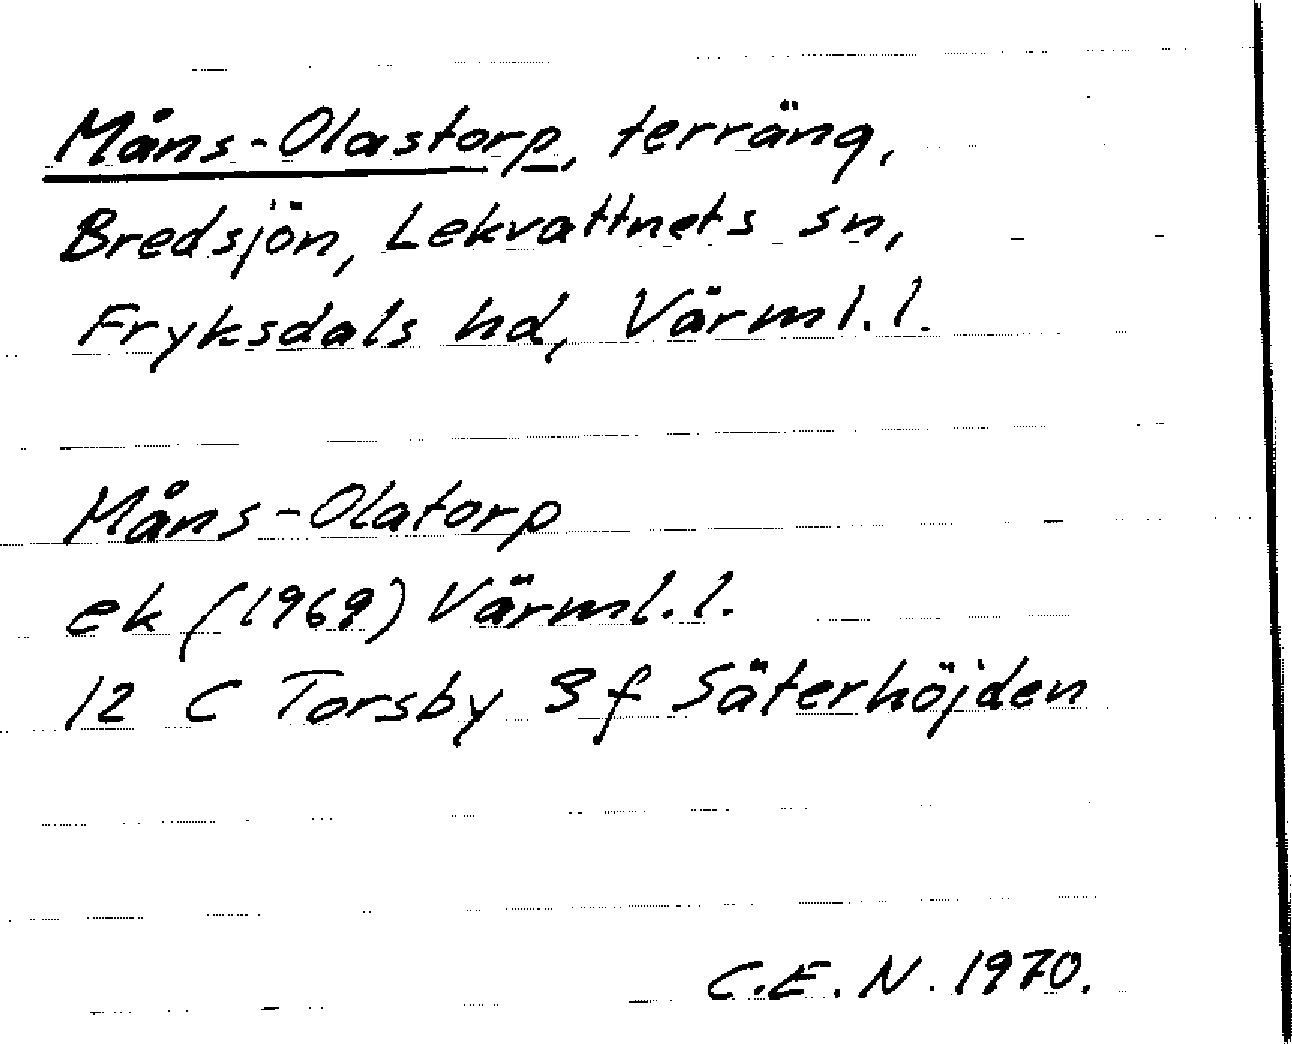 Måns-Olastorp, terräng,
Bredsjön, Lekvattnets sn,
Fryksdals hd, Värml.l.
Måns-Olatorp
ek (1969) Värml.l.
12 C Torsby 3 f Säterhöjden
C.E.N. 1970.